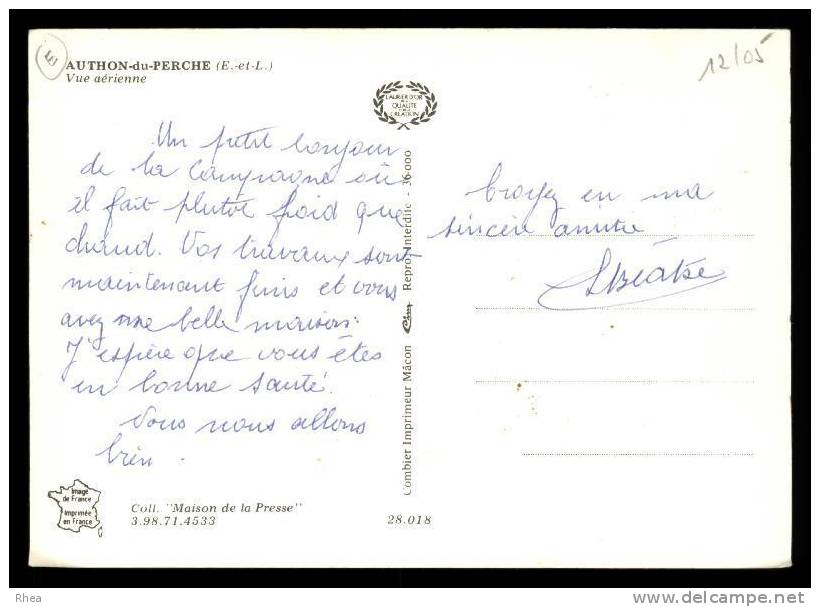 AUTHON-du-PERCHE (E.-et-L.)
Vue aérienne
12/05
LAURIER D'OR
DE LA
QUALITÉ
CRÉATION
Un petit bonjour
de la Campagne où
il fait plutot froid que
chaud. Vos travaux sont
maintenant finis et vous
avez une belle maison.
J'espère que vous êtes
en bonne santé.
Nous nous allons
bien.
Croyez en ma
sincère amitié
Combier Imprimeur Mâcon Cim Repro. Interdite - 36.000
Image
de France
Imprimée
en France
Coll. "Maison de la Presse"
3.98.71.4533
28.018
Rhea
www.delcampe.net